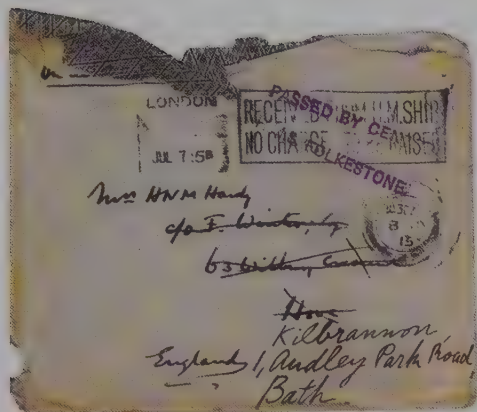 LONDON
JUL 7 15
RECEIVED FROM H.M. SHIP
NO CHARGE TO BE RAISED
PASSED BY CENSOR
FOLKESTONE
Mrs HNM Hardy
c/o F.
63
Hove
Kilbrannon
England 1, Audley Park Road
Bath